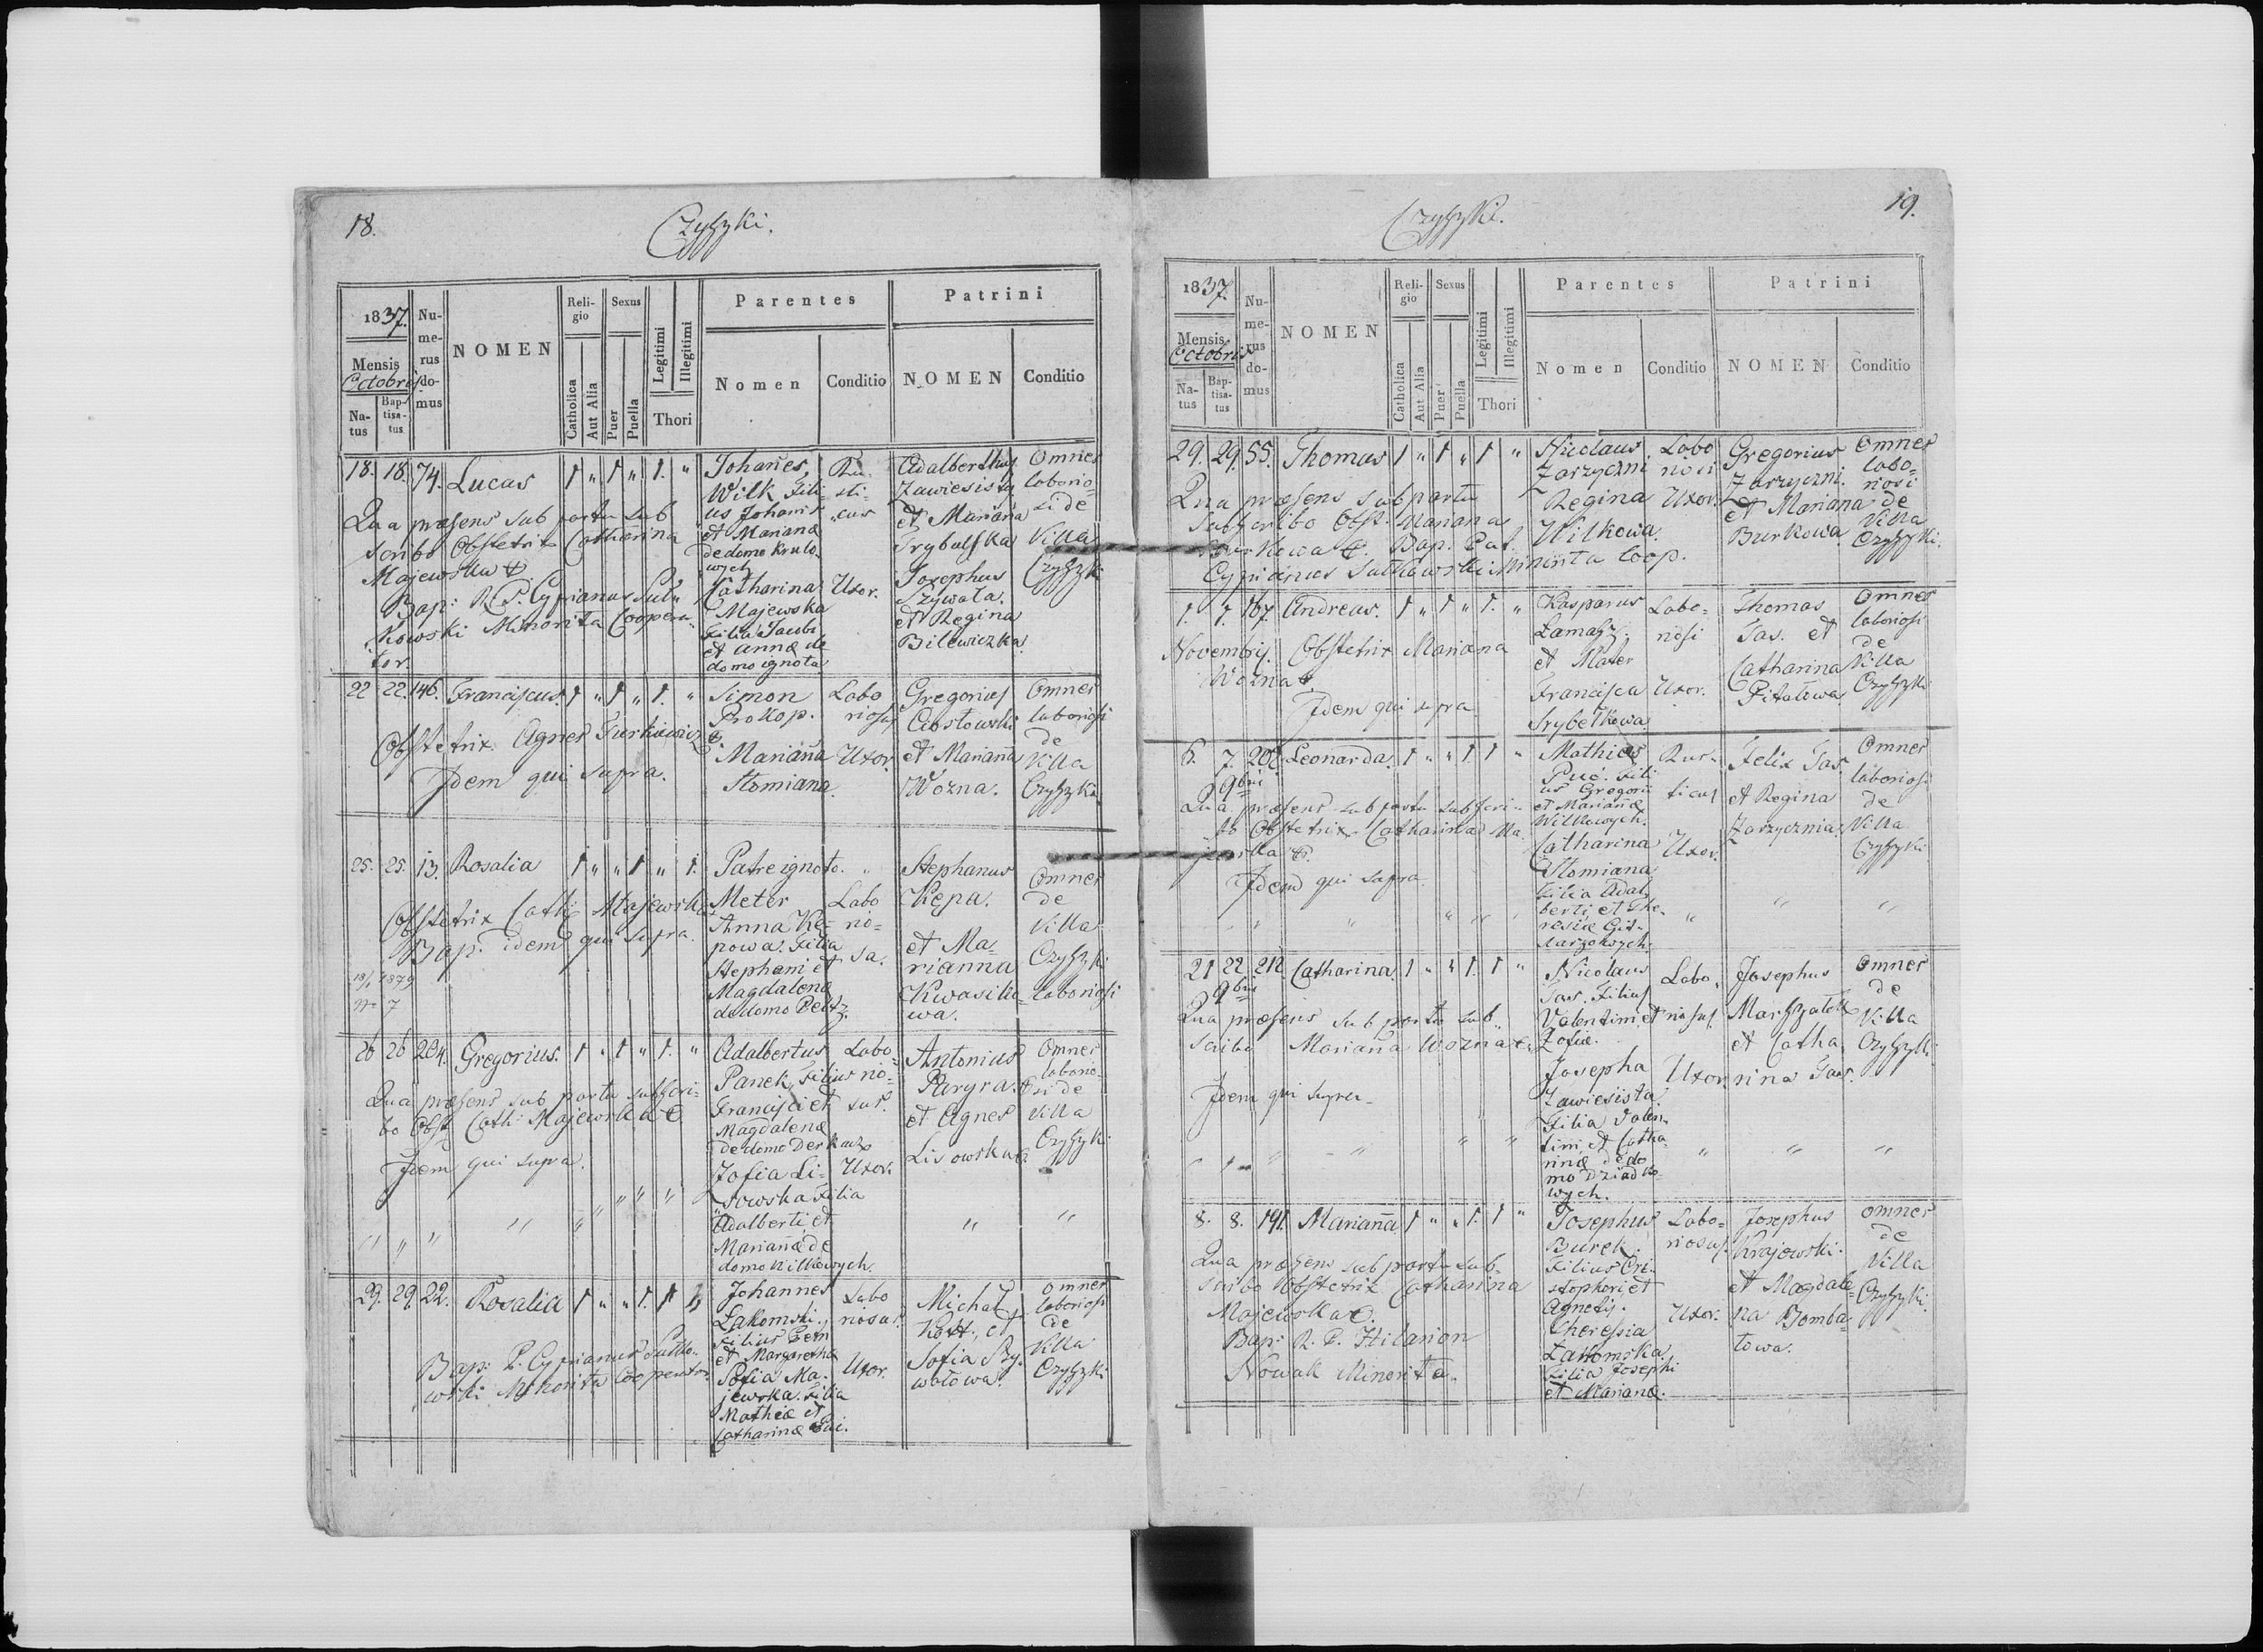 18.
Czyszki.
1837.
Mensis
Octobris
Na-
tus
Bap-
tisa-
tus
Nu-
me-
rus
do-
mus
NOMEN
Reli-
gio
Catholica
Aut Alia
Sexus
Puer
Puella
Legitimi
Illegitimi
Thori
Parentes
Nomen
Conditio
Patrini
NOMEN
Conditio
18. 18. 74. Lucas 1 " 1 " 1. "
Qua præsens sub partu sub
scribo Obstetrix Catharina
Majewska
Bap: R. P. Cyprianus Sut
kowski Minorita Coopera
tor.
Johañes
Wilk Fili-
us Johanis
et Mariana
de domo Krulo
wych
Catharina
Majewska
Filia Jacobi
et Anna de
domo ignota
Ru
sti-
cus
Uxor.
Adalberthus
Zawiesisty
et Mariana
Trybalska
Josephus
Szywata.
et Regina
Bilewiczka.
Omnes
laborio-
si de
Villa
Czyszki
22 22. 146. Franciscus. 1 " 1 " 1. "
Obstetrix Agnes Turkiewicz
Idem qui supra.
Simon
Prokop.
Mariaña
Stomiana
Labo
riosus
Uxor.
Gregorius
Cibstowski
et Mariaña
Wozna.
Omnes
laboriosi
de
Villa
Czyszki
25. 25. 13. Rosalia 1 " " 1 " 1.
Obstetrix Cath: Majewska
Bap: idem qui supra.
1879
No 7
Patre ignoto.
Meter
Anna Ke-
powa. Filia
Stephani et
Magdalena
de domo Peltz.
Labo
rio-
sa.
Stephanus
Kepa.
et Ma-
rianna
Kwasiko-
wa.
Omnes
de
Villa
Czyszki
laboriosi
26 26 204. Gregorius. 1 " 1 " 1. "
Qua præsens sub partu subscri-
bo Obst. Cath: Majewska
Idem qui supra.
Adalbertus
Panek, Filius
Francisci et
Magdalena
de domo Derkacz
Zofia Li-
sowska Filia
Adalberti et
Mariañæ de
domo Wilkowych.
Labo-
rio-
sus.
Uxor.
Antonius
Paryra.
et Agnes
Lisowska
Omnes
laborio-
si de
Villa
Czyszki
29. 29. 22. Rosalia 1 " " 1. 1
Bap: P. Cyprianus Sutko-
wski Minorita Cooperator
Johannes
Lakomski.
Filius Petri
et Margaretha
Zofia Ma-
jewska. Filia
Mathiæ et
Catharinæ Puc.
Labo
riosus.
Uxor.
Michał
Kott, et
Sofia Szy-
wałowa.
Omnes
laboriosi
de
Villa
Czyszki
19.
Czyszki.
1837.
Mensis
Octobris
Na-
tus
Bap-
tisa-
tus
Nu-
me-
rus
do-
mus
NOMEN
Reli-
gio
Catholica
Aut Alia
Sexus
Puer
Puella
Legitimi
Illegitimi
Thori
Parentes
Nomen
Conditio
Patrini
NOMEN
Conditio
29. 29. 55. Thomas 1 " 1 " 1 "
Qua præsens sub partu
subscribo Obst. Mariana
Burkowa Bap. Pat.
Cyprianus Sutkowski Minorita Coop.
Nicolaus
Zarzyczni
Regina
Wilkowa.
Labo
riosi
Uxor.
Gregorius
Zarzyczni.
et Mariana
Burkowa
Omnes
labo-
riosi
de
Villa
Czyszki.
1. 1. 167. Andreas. 1 " 1 " 1. "
Novembris. Obstetrix Mariana
Wozna
Idem qui supra
Kasparus
Lamasz.
et Mater
Francisca
Srybełkowa
Labo-
riosi
Uxor.
Thomas
Tas. et
Catharina
Pitałowa
Omnes
laboriosi
de
Villa
Czyszki
6. 7. 200 Leonarda. 1 " " 1. 1 "
9bris
Qua præsens sub partu subscri-
bo Obstetrix Catharina Ma-
jewska
Idem qui supra
Mathias
Puc. Fili
us Gregorii
et Mariañæ
Wilkowych.
Catharina
Stomiana
Filia Adal-
berti et The-
resiæ Gis-
Rus-
ticus
Uxor.
Felix Tas.
et Regina
Zarzycznia
Omnes
laboriosi
de
Villa
Czyszki
21 22 212 Catharina. 1 " " 1. 1 "
9bris
Qua præsens sub partu sub-
scribo Mariaña Wozna
Idem qui supra
Nicolaus
Tas. Filius
Valentini et
Zofiæ.
Josepha
Zawiesista
Filia Valen-
tini et Catha-
rinæ de do
mo Dziadko-
wych.
Labo-
riosus.
Uxor.
Josephus
Marszałek
et Catha-
rina Tas.
Omnes
de
Villa
Czyszki
8. 8. 191. Mariaña 1 " " 1. 1 "
Qua præsens sub partu sub-
scribo Obstetrix Catharina
Majewska
Bap: R. P. Hilarion
Nowak Minorita.
Josephus
Burek.
Filius Cri-
stophori, et
Agnetis.
Theressia
Łakomska.
Filia Josephi
et Marianæ.
Labo-
riosus.
Uxor.
Josephus
Krajowski.
et Magdale-
na Bomba-
towa.
Omnes
de
Villa
Czyszki.